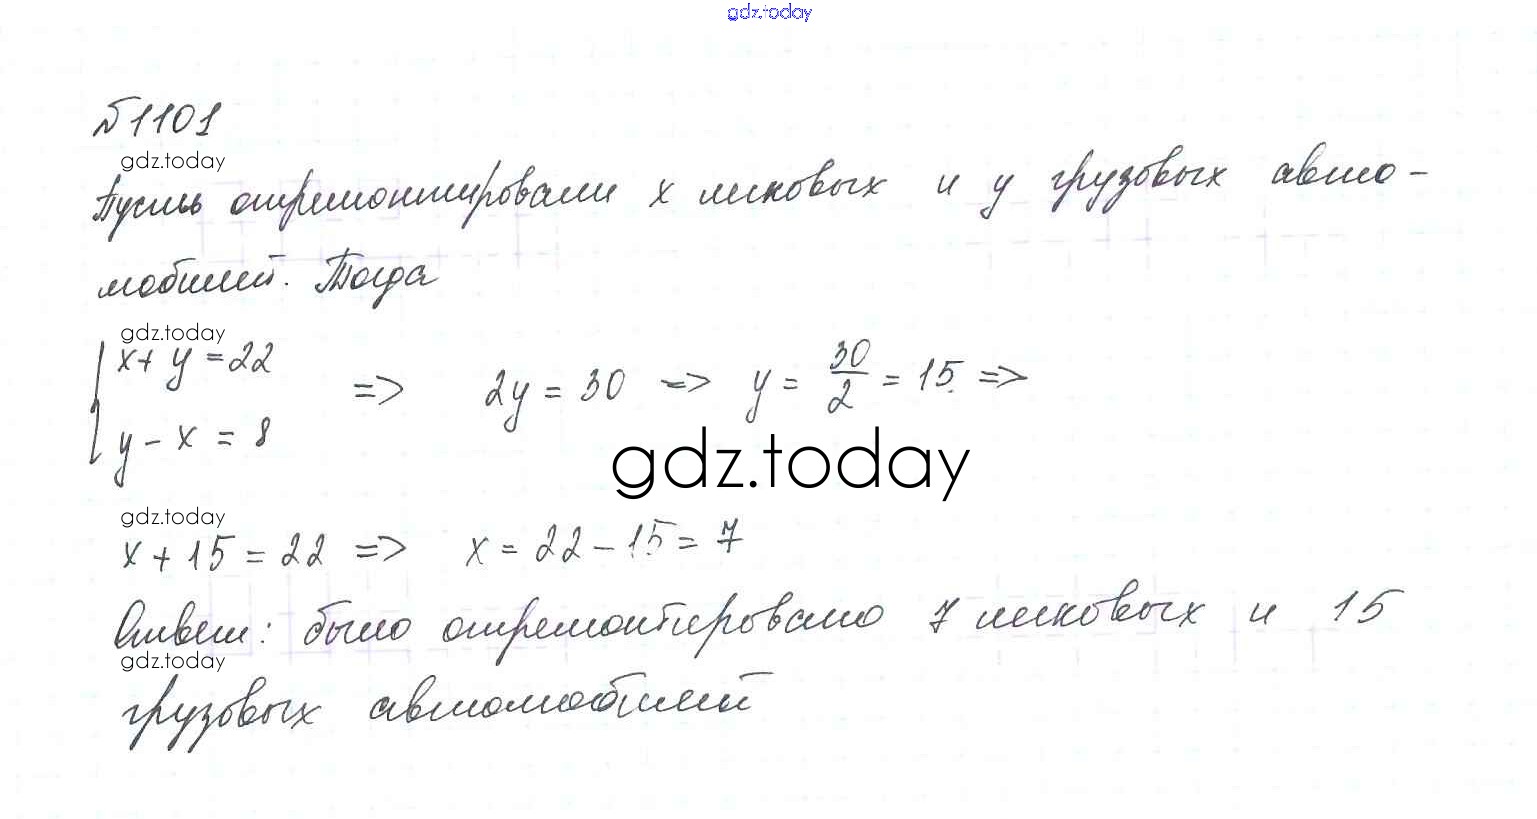 gdz.today
№1101
gdz.today
Пусть отремонтировали x легковых и y грузовых авто-
мобилей. Тогда
gdz.today
x + y = 22
y - x = 8
=> 2y = 30 => y = 30/2 = 15 =>
gdz.today
gdz.today
x + 15 = 22 => x = 22 - 15 = 7
Ответ: было отремонтировано 7 легковых и 15
gdz.today
грузовых автомобилей